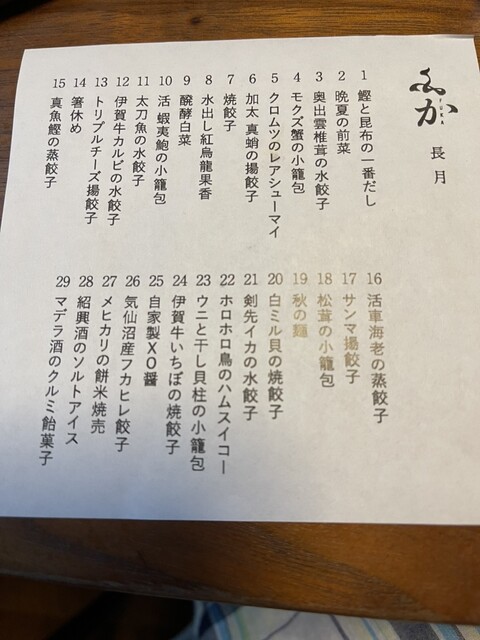 ふか
FUKA
長月
1 鰹と昆布の一番だし
2 晩夏の前菜
3 奥出雲椎茸の水餃子
4 モクズ蟹の小籠包
5 クロムツのレアシューマイ
6 加太 真蛸の揚餃子
7 焼餃子
8 水出し紅烏龍果香
9 醗酵白菜
10 活 蝦夷鮑の小籠包
11 太刀魚の水餃子
12 伊賀牛カルビの水餃子
13 トリプルチーズ揚餃子
14 箸休め
15 真魚鰹の蒸餃子
16 活車海老の蒸餃子
17 サンマ揚餃子
18 松茸の小籠包
19 秋の麺
20 白ミル貝の焼餃子
21 剣先イカの水餃子
22 ホロホロ鳥のハムスイコー
23 ウニと干し貝柱の小籠包
24 伊賀牛いちぼの焼餃子
25 自家製XO醤
26 気仙沼産フカヒレ餃子
27 メヒカリの餅米焼売
28 紹興酒のソルトアイス
29 マデラ酒のクルミ飴菓子